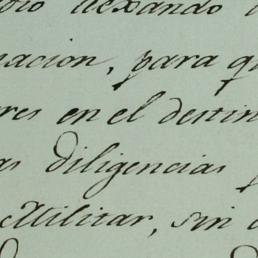 dexando
nacion, para qu
res en el destin
as diligencias
Militar, sin